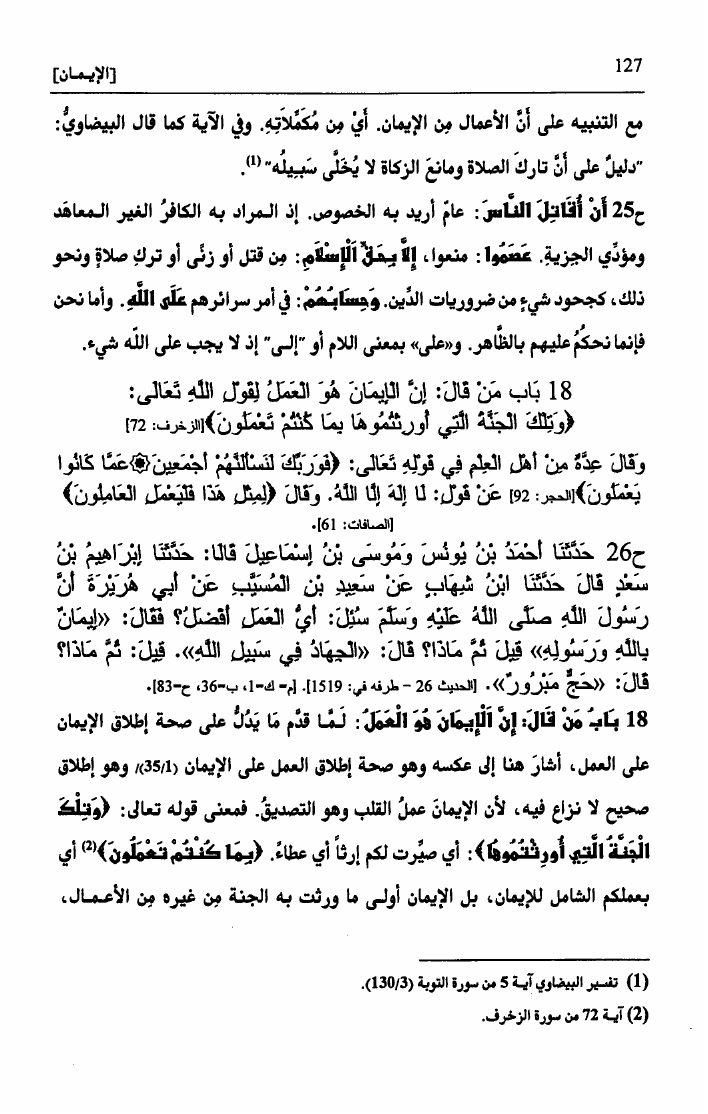 127
[الإيـمـان]
مع التنبيه على أنَّ الأعمال مِن الإيمان. أيْ مِن مُكَمِّلاَتِهِ. وفي الآية كما قال البيضاويُّ:
"دليلٌ على أنَّ تاركَ الصلاة ومانعَ الزكاة لا يُخَلَّى سَبِيلُه" (1).
ح25 أَنْ أُقَاتِلَ النَّاسَ: عامٌ أريد به الخصوص. إذ الـمراد به الكافرُ الغير الـمعاهَد
ومؤدِّي الجزية. عَصَمُوا: منعوا، إِلاَّ بِحَقِّ الْإِسْلَامِ: مِن قتل أو زنًى أو تركِ صلاةٍ ونحو
ذلك، كجحود شيءٍ من ضروريات الدِّين. وَحِسَابُهُمْ: في أمر سرائرهم عَلَى اللَّهِ. وأما نحن
فإنما نحكُمُ عليهم بالظاهر. و«على» بمعنى اللام أو "إلى" إذ لا يجب على اللَّه شيء.
18 بَاب مَنْ قَالَ: إِنَّ الْإِيمَانَ هُوَ الْعَمَلُ لِقَوْلِ اللَّهِ تَعَالَى:
﴿وَتِلْكَ الْجَنَّةُ الَّتِي أُورِثْتُمُوهَا بِمَا كُنْتُمْ تَعْمَلُونَ﴾[الزخرف: 72]
وَقَالَ عِدَّةٌ مِنْ أَهْلِ الْعِلْمِ فِي قَوْلِهِ تَعَالَى: ﴿فَوَرَبِّكَ لَنَسْأَلَنَّهُمْ أَجْمَعِينَ۞عَمَّا كَانُوا
يَعْمَلُونَ﴾[الحجر: 92] عَنْ قَوْلِ: لَا إِلَهَ إِلَّا اللَّهُ. وَقَالَ ﴿لِمِثْلِ هَذَا فَلْيَعْمَلِ الْعَامِلُونَ﴾
[الصافات: 61].
ح26 حَدَّثَنَا أَحْمَدُ بْنُ يُونُسَ وَمُوسَى بْنُ إِسْمَاعِيلَ قَالَا: حَدَّثَنَا إِبْرَاهِيمُ بْنُ
سَعْدٍ قَالَ حَدَّثَنَا ابْنُ شِهَابٍ عَنْ سَعِيدِ بْنِ الْمُسَيَّبِ عَنْ أَبِي هُرَيْرَةَ أَنَّ
رَسُولَ اللَّهِ صَلَّى اللَّهُ عَلَيْهِ وَسَلَّمَ سُئِلَ: أَيُّ الْعَمَلِ أَفْضَلُ؟ فَقَالَ: «إِيمَانٌ
بِاللَّهِ وَرَسُولِهِ» قِيلَ ثُمَّ مَاذَا؟ قَالَ: «الْجِهَادُ فِي سَبِيلِ اللَّهِ». قِيلَ: ثُمَّ مَاذَا؟
قَالَ: «حَجٌّ مَبْرُورٌ». [الحديث 26 - طرفه في: 1519]. [م- ك-1، ب-36، ح-83].
18 بَابُ مَنْ قَالَ: إِنَّ الْإِيمَانَ هُوَ الْعَمَلُ: لَـمَّا قدَّم ما يَدُلُّ على صحة إطلاق الإيمان
على العمل، أشارَ هنا إلى عكسه وهو صحة إطلاق العمل على الإيمان (35/1)/ وهو إطلاق
صحيح لا نزاع فيه، لأن الإيمانَ عملُ القلب وهو التصديقُ. فمعنى قوله تعالى: ﴿وَتِلْكَ
الْجَنَّةُ الَّتِي أُورِثْتُمُوهَا﴾: أي صيِّرت لكم إرثاً أي عطاءً. ﴿بِمَا كُنْتُمْ تَعْمَلُونَ﴾(2) أي
بعملكم الشامل للإيمان، بل الإيمان أولـى ما ورثت به الجنة مِن غيره مِن الأعـمـال،
(1) تفسير البيضاوي آيـة 5 من سورة التوبة (130/3).
(2) آيـة 72 من سورة الزخرف.